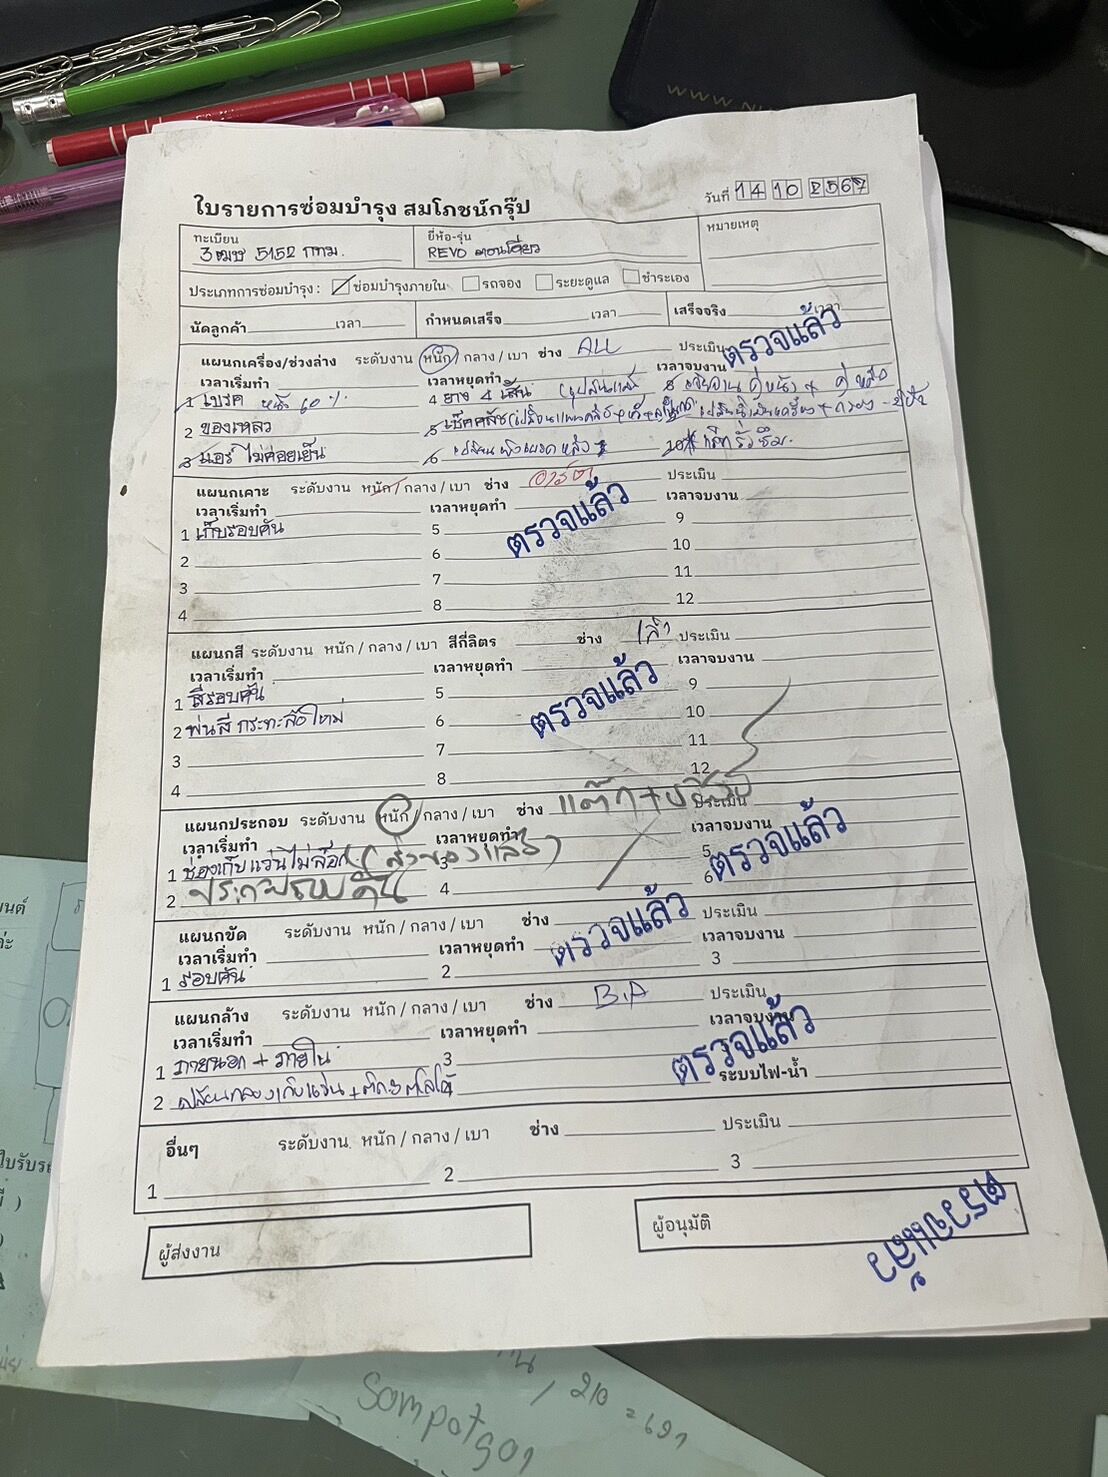 www.
ใบรายการซ่อมบำรุง สมโภชน์กรุ๊ป
วันที่ 14 10 2567
ทะเบียน
3ฒฆ 5152 กทม.
ยี่ห้อ-รุ่น
REVO ตอนเดียว
หมายเหตุ
ประเภทการซ่อมบำรุง : ซ่อมบำรุงภายใน รถจอง ระยะดูแล ชำระเอง
นัดลูกค้า เวลา กำหนดเสร็จ เวลา เสร็จจริง เวลา
ตรวจแล้ว
แผนกเครื่อง/ช่วงล่าง ระดับงาน หนัก / กลาง / เบา ช่าง ALL ประเมิน
เวลาเริ่มทำ เวลาหยุดทำ เวลาจบงาน
1 เบรค หน้า 60 % 4 ยาง 4 เส้น
2 ของเหลว 5 เช็คคลัช
3 แอร์ ไม่ค่อยเย็น 6 เปลี่ยน เบรค หลัง
แผนกเคาะ ระดับงาน หนัก / กลาง / เบา ช่าง ประเมิน
เวลาเริ่มทำ เวลาหยุดทำ เวลาจบงาน
ตรวจแล้ว
1 เก็บรอบคัน 5 9
2 6 10
3 7 11
4 8 12
แผนกสี ระดับงาน หนัก / กลาง / เบา สีกี่ลิตร ช่าง ประเมิน
เวลาเริ่มทำ เวลาหยุดทำ เวลาจบงาน
ตรวจแล้ว
1 สีรอบคัน 5 9
2 พ่นสี กระทะล้อใหม่ 6 10
3 7 11
4 8 12
แผนกประกอบ ระดับงาน หนัก / กลาง / เบา ช่าง ประเมิน
เวลาเริ่มทำ เวลาหยุดทำ เวลาจบงาน
ตรวจแล้ว
1 ช่องเก็บแว่นไม่ล็อก (สั่งของแล้ว) 3 5
2 ประกอบรอบคัน 4 6
แผนกขัด ระดับงาน หนัก / กลาง / เบา ช่าง ประเมิน
เวลาเริ่มทำ เวลาหยุดทำ เวลาจบงาน
ตรวจแล้ว
1 รอบคัน 2 3
แผนกล้าง ระดับงาน หนัก / กลาง / เบา ช่าง B.A ประเมิน
เวลาเริ่มทำ เวลาหยุดทำ เวลาจบงาน
ตรวจแล้ว
1 ภายนอก + ภายใน 3
2 เปลี่ยนกล่องเก็บแว่น + 4 ระบบไฟ-น้ำ
อื่นๆ ระดับงาน หนัก / กลาง / เบา ช่าง ประเมิน
1 2 3
ผู้ส่งงาน
ผู้อนุมัติ
ตรวจแล้ว